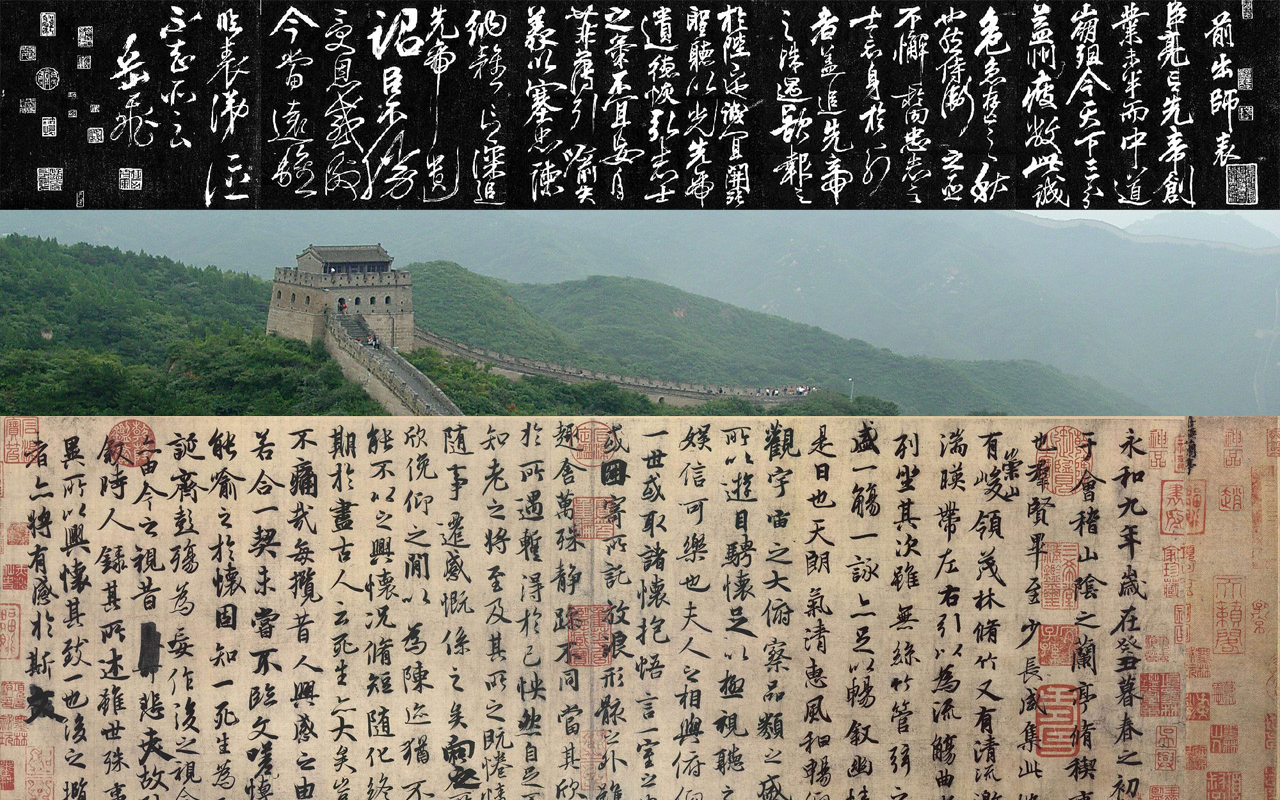 前出師表
臣亮言先帝創
業未半而中道
崩殂今天下三分
益州疲敝此誠
危急存亡之秋
也然侍衛之臣
不懈於內忠志之
士忘身於外
者蓋追先帝
之殊遇欲報之
於陛下也誠宜開張
聖聽以光先帝
遺德恢弘志士
之氣不宜妄自
菲薄引喻失
義以塞忠諫
納雅言深追
先帝遺
詔臣不勝
受恩感激
今當遠離
臨表涕泣
不知所云
岳飛
永和九年歲在癸丑暮春之初
于會稽山陰之蘭亭脩稧事
也羣賢畢至少長咸集此
有崇山峻領茂林脩竹又有清流激
湍暎帶左右引以為流觴曲
列坐其次雖無絲竹管弦之
盛一觴一詠亦足以暢叙幽情
是日也天朗氣清惠風和暢仰
觀宇宙之大俯察品類之盛
所以遊目騁懷足以極視聽之
娛信可樂也夫人之相與俯仰
一世或取諸懷抱悟言一室之
或因寄所託放浪形骸之外雖
趣舍萬殊靜躁不同當其欣
於所遇暫得於己怏然自足
知老之將至及其所之既惓情
隨事遷感慨係之矣向之所
欣俛仰之閒以為陳迹猶不
能不以之興懷況脩短隨化終
期於盡古人云死生亦大矣豈
不痛哉每攬昔人興感之由
若合一契未嘗不臨文嗟悼
能喻之於懷固知一死生為
誕齊彭殤為妄作後之視今
亦由今之視昔悲夫故列
敘時人錄其所述雖世殊事
異所以興懷其致一也後之攬
者亦將有感於斯文